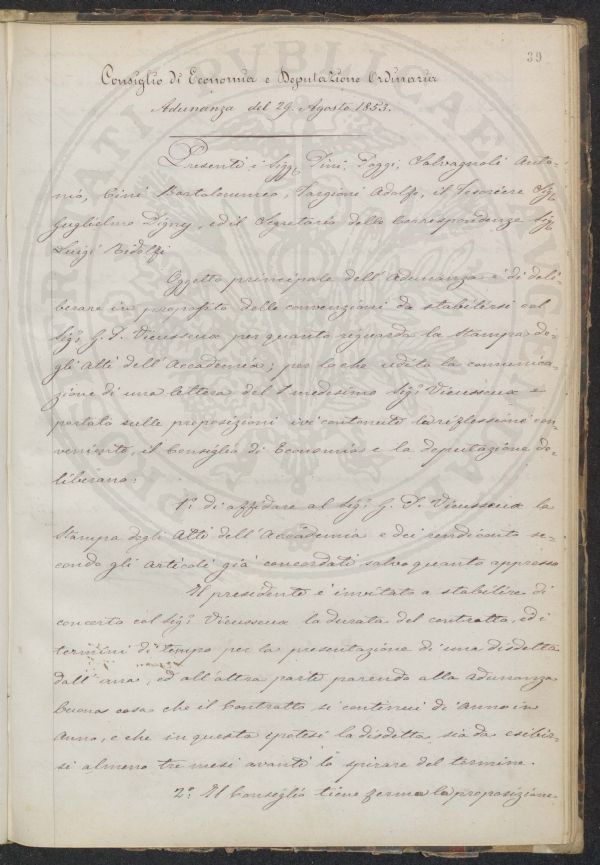 39
Consiglio di Economia e Deputazione Ordinaria
Adunanza del 29. Agosto 1853.
Presenti i Sigg. Pini, Poggi, Salvagnoli Anto-
nio, Cini Bartolommeo, Targioni Adolfo, il Tesoriere Sig.
Guglielmo Digny, ed il Segretario delle Corrispondenze Sig.
Luigi Ridolfi
Oggetto principale dell'Adunanza è di deli-
berare in proposito delle convenzioni da stabilirsi col
Sig. G. P. Vieusseux per quanto riguarda la Stampa de-
gli Atti dell'Accademia; per lo che udita la comunica-
zione di una lettera del medesimo Sig. Vieusseux e
portata sulle proposizioni ivi contenute la riflessione con
veniente, il Consiglio di Economia e la deputazione de-
liberano:
1.° di affidare al Sig. G. P. Vieusseux la
Stampa degli Atti dell'Accademia e dei rendiconti se-
condo gli articoli già concordati salvo quanto appresso
Il presidente è invitato a stabilire di
concerto col Sig. Vieusseux la durata del contratto, ed i
termini di tempo per la presentazione di una disdetta
dall'una, ed all'altra parte parendo alla adunanza
buona cosa che il Contratto si continui di Anno in
Anno, e che in questa ipotesi la disdetta sia da esibir-
si almeno tre mesi avanti lo spirare del termine.
2.° Il Consiglio tiene ferma la proposizione
PRO
PUBLICAE